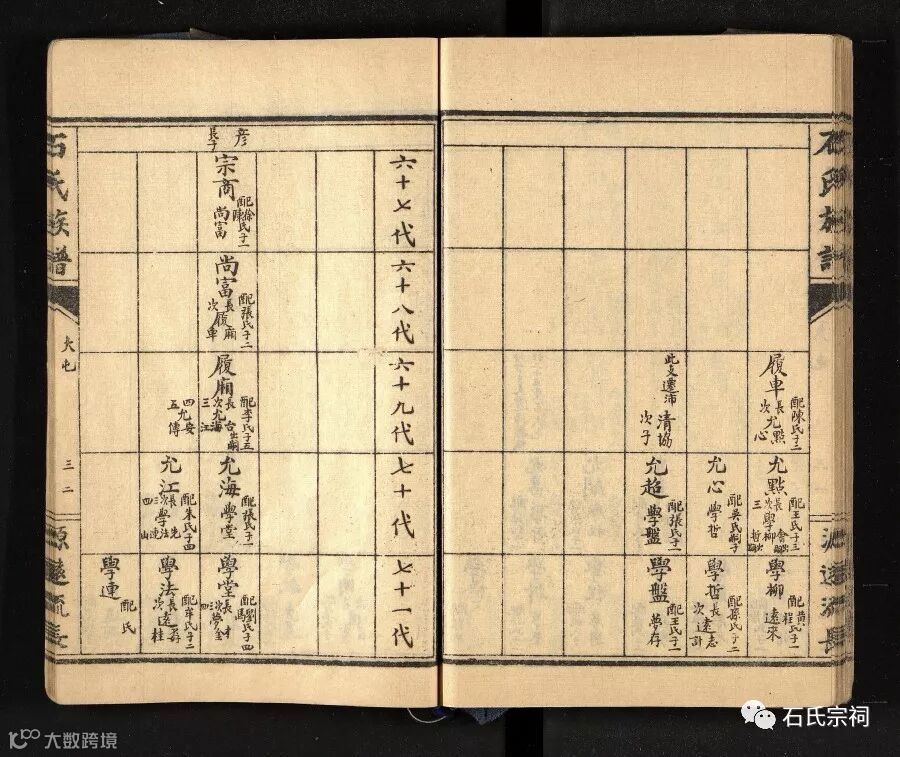 石氏族譜
源遠流長
履車
配陳氏子二
長允點
次允心
此支遷沛
清協
次子
允點
配王氏子三
次學柳
允心
配吳氏嗣子
學哲
允超
配張氏子一
學盤
學柳
配黃程氏子一
遠來
學哲
配孫氏子二
長遠志
次計
學盤
配王氏子一
夢存
六十七代
六十八代
六十九代
七十代
七十一代
彥
長子
宗商
配徐陳氏子一
尚富
尚富
配張氏子二
長履廂
次車
履廂
配李氏子五
次允海
三江
四允安
五傳
允海
配張氏子一
學堂
允江
配朱氏子四
次學法
三連
四山
學堂
配劉馮氏子四
學法
配牟氏子二
次桂
學連
配氏
石氏族譜
大屯
三二
源遠流長
大数跨境
石氏宗祠